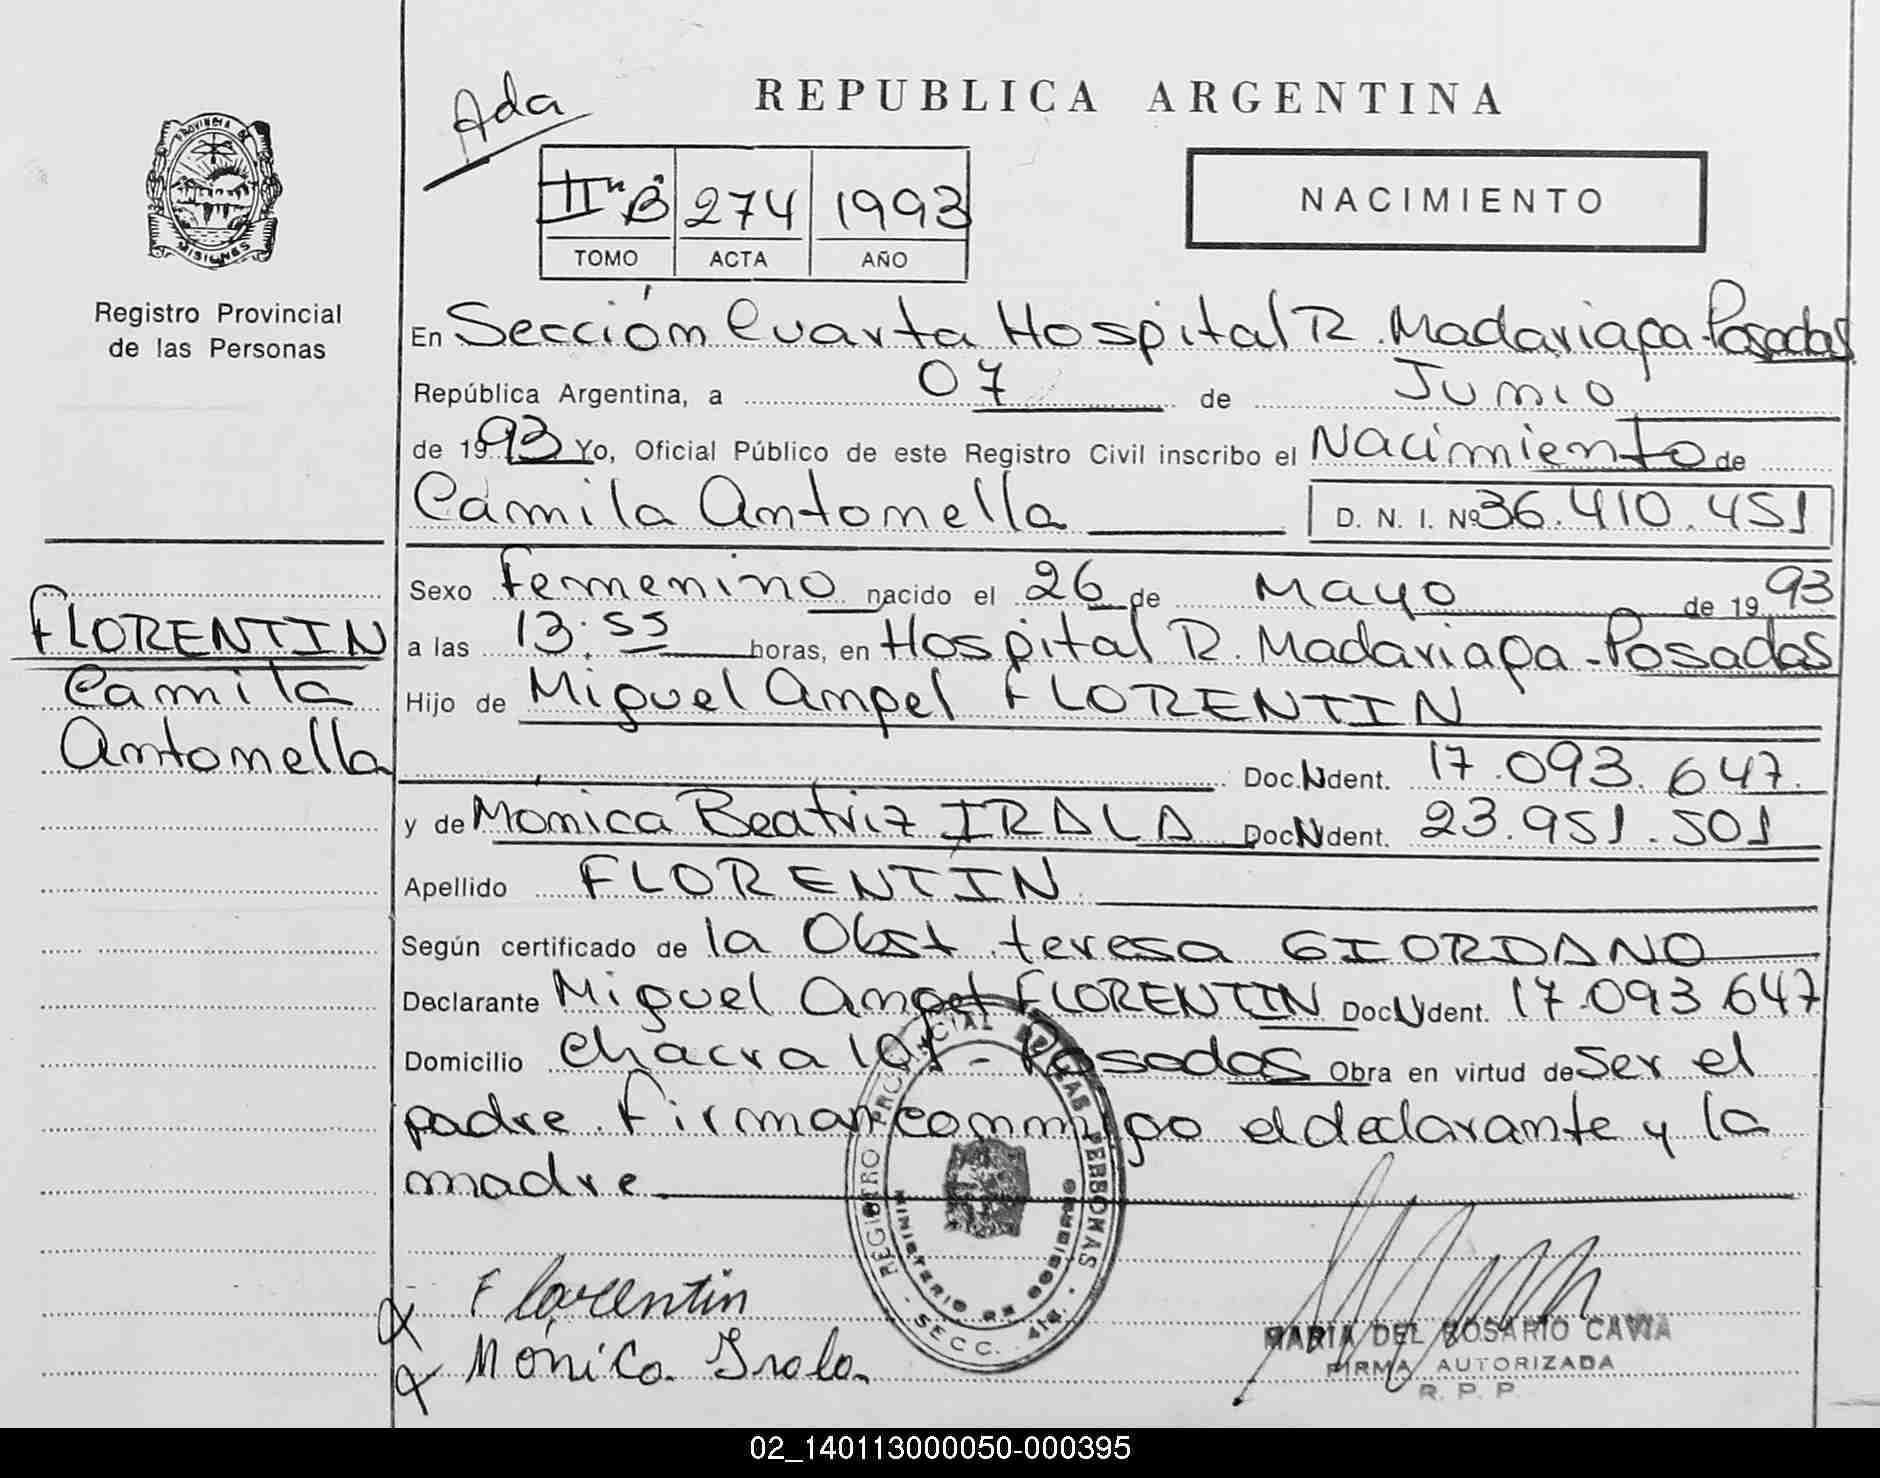 REPUBLICA ARGENTINA
Ada
IIº B 274 1993
TOMO ACTA AÑO
NACIMIENTO
PROVINCIA DE
MISIONES
Registro Provincial
de las Personas
En Sección Cuarta Hospital R. Madariaga - Posadas
República Argentina, a 07 de Junio
de 1993 Yo, Oficial Público de este Registro Civil inscribo el Nacimiento de
Camila Antonella D. N. I. Nº 36.410.451
Sexo Femenino nacido el 26 de Mayo de 1993
FLORENTIN
Camila
Antonella
a las 13:55 horas, en Hospital R. Madariaga - Posadas
Hijo de Miguel Angel FLORENTIN
Doc. Ndent. 17.093.647.
y de Mónica Beatriz IRALA Doc Ndent. 23.951.501
Apellido FLORENTIN
Según certificado de la Obst. teresa GIORDANO
Declarante Miguel Angel FLORENTIN Doc Ndent. 17.093.647
Domicilio Chacra 101 - Posadas Obra en virtud de Ser el
padre. Firman conmigo el declarante y la
madre.
REGISTRO PROVINCIAL DE LAS PERSONAS
MINISTERIO DE GOBIERNO
- SECC. 4ta. -
Florentin
Mónica Irala
MARIA DEL ROSARIO CAVIA
FIRMA AUTORIZADA
R. P. P.
02_140113000050-000395